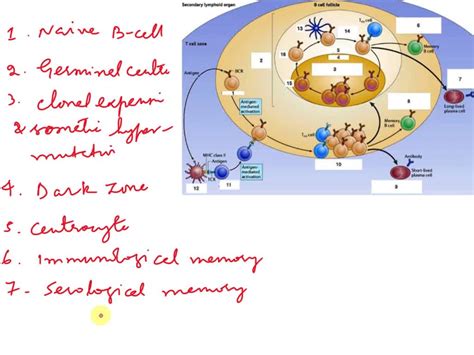 1. Naive B-cell
2. Germinal cente
3. clonal expensi
& sometic hyper-
mutation
4. Dark Zone
5. Centrocyte
6. Immunological memory
7- Serological memory
Secondary lymphoid organ
B cell follicle
T cell zone
Antigen
BCR
Antigen-
mediated
activation
MHC class II
Antigen
TCR
Antigen-
mediated
activation
Memory
B cell
Long-lived
plasma cell
Memory
B cell
Antibody
Short-lived
plasma cell
1
2
3
4
5
6
7
8
9
10
11
12
13
14
16